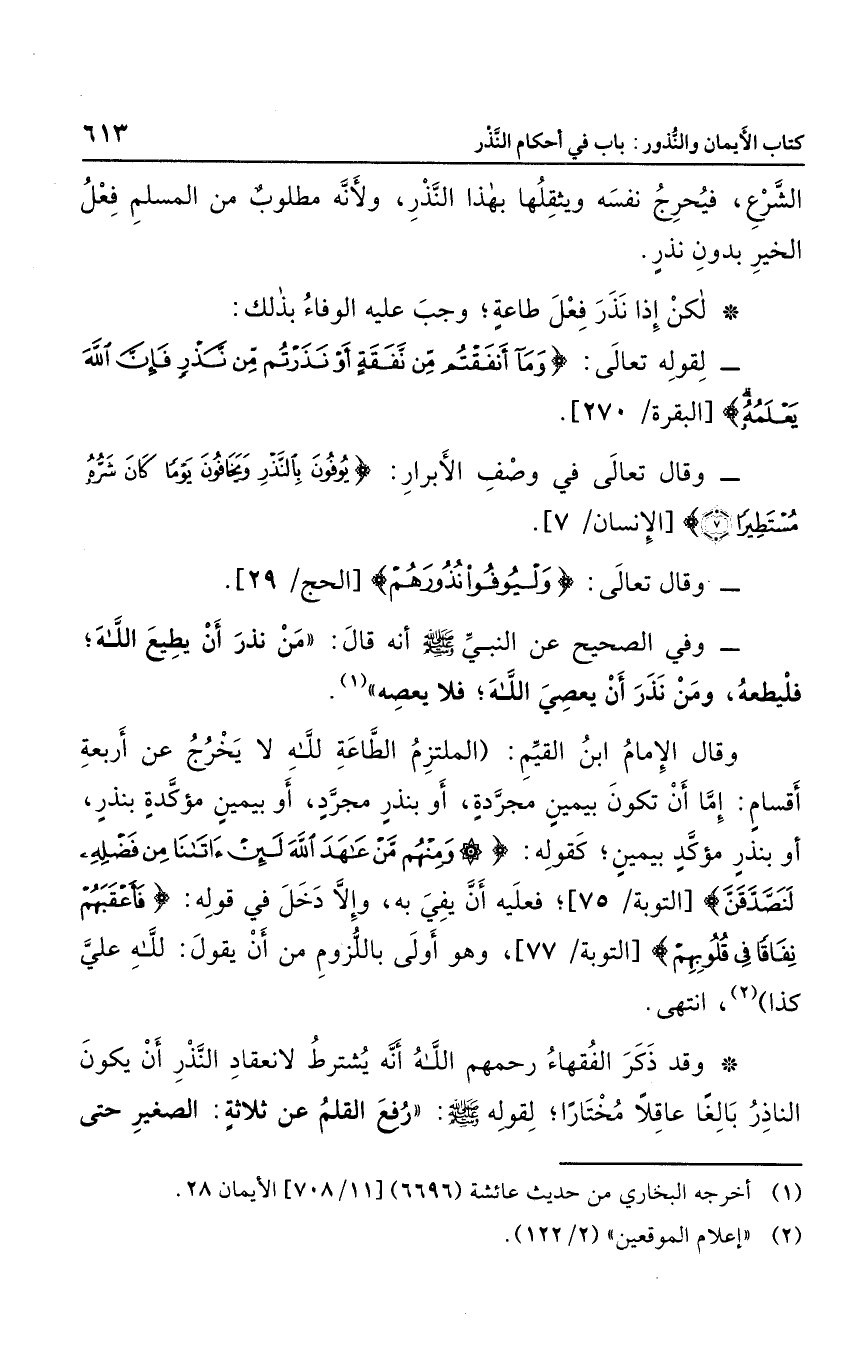 كتاب الأَيمان والنُّذور: باب في أحكام النَّذْر ٦١٣
الشَّرْعِ، فيُحرِجُ نفسَه ويثقِلُها بهٰذا النَّذْرِ، ولأَنَّه مطلوبٌ من المسلمِ فِعْلُ
الخيرِ بدونِ نذرٍ.
* لٰكنْ إِذا نَذَرَ فِعْلَ طاعةٍ؛ وجبَ عليه الوفاءُ بذٰلك:
ـ لِقولِه تعالَى: ﴿وَمَآ أَنفَقْتُم مِّن نَّفَقَةٍ أَوْ نَذَرْتُم مِّن نَّذْرٍ فَإِنَّ ٱللَّهَ
يَعْلَمُهُۥۗ﴾ [البقرة/ ٢٧٠].
ـ وقال تعالَى في وصْفِ الأَبرارِ: ﴿يُوفُونَ بِٱلنَّذْرِ وَيَخَافُونَ يَوْمًا كَانَ شَرُّهُۥ
مُسْتَطِيرًا ۝٧﴾ [الإنسان/ ٧].
ـ وقال تعالَى: ﴿وَلْيُوفُوا۟ نُذُورَهُمْ﴾ [الحج/ ٢٩].
ـ وفي الصحيح عن النبـيِّ ﷺ أنه قالَ: «مَنْ نذرَ أَنْ يطيعَ اللَّـٰهَ؛
فلْيطعهُ، ومَنْ نَذَرَ أَنْ يعصِيَ اللَّـٰهَ؛ فلا يعصِه»(١).
وقال الإِمامُ ابنُ القيِّمِ: (الملتزِمُ الطَّاعَةِ للَّـٰهِ لا يَخْرُجُ عن أَربعةِ
أَقسامٍ: إِمَّا أَنْ تكونَ بيمينٍ مجرَّدةٍ، أَو بنذرٍ مجرَّدٍ، أَو بيمينٍ مؤكَّدةٍ بنذرٍ،
أَو بنذرٍ مؤكَّدٍ بيمينٍ؛ كَقولِه: ﴿۞ وَمِنْهُم مَّنْ عَـٰهَدَ ٱللَّهَ لَئِنْ ءَاتَىٰنَا مِن فَضْلِهِۦ
لَنَصَّدَّقَنَّ﴾ [التوبة/ ٧٥]؛ فعلَيه أَنَّ يفِيَ به، وإِلاَّ دَخَلَ في قولِه: ﴿فَأَعْقَبَهُمْ
نِفَاقًا فِى قُلُوبِهِمْ﴾ [التوبة/ ٧٧]، وهو أَولَى باللُّزومِ من أَنْ يقولَ: للَّـٰهِ عليَّ
كذا)(٢)، انتهى.
* وقد ذَكَرَ الفُقهاءُ رحمهم اللَّـٰهُ أَنَّه يُشترطُ لانعقادِ النَّذْرِ أَنْ يكونَ
الناذِرُ بَالِغًا عاقلاً مُخْتَارًا؛ لِقولِه ﷺ: «رُفِعَ القلمُ عن ثلاثةٍ: الصغيرِ حتى
(١) أخرجه البخاري من حديث عائشة (٦٦٩٦) [٧٠٨/١١] الأيمان ٢٨.
(٢) «إعلام الموقعين» (٢/ ١٢٢).